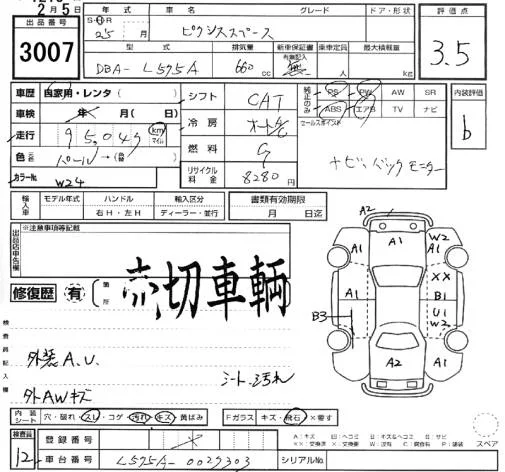 2月5日
出品番号 3007
年式 S・H・R 25 年 月
車名 ピクシススペース
グレード
ドア・形状
評価点 3.5
型式 DBA- L575A
排気量 660 cc
新車保証書 有無記入
乗車定員 人
最大積載量 kg
車歴 自家用・レンタ ( )
車検 年 月 ( 日)
走行 95,045 km マイル
色 (元色) パール → (替色)
カラーNo. W24
シフト CAT
冷房 オートA/C
燃料 G
リサイクル料金 8280 円
純正のみ PS PW AW SR
ABS エアB TV ナビ
セールスポイント
ナビ、バックモニター
内装評価 b
輸入車 モデル年式 ハンドル 右H・左H 輸入区分 ディーラー・並行
書類有効期限 月 日迄
出品店申告欄 ※注意事項等記載
修復歴 有 箇所
売切車輌
検査員記入欄
外装A.U.
シート汚れ
外AWキズ
A2 A1 W2 A1 A1 XX A1 B1 B3 U1 W2 A1 A2 A1
内装シート 穴・破れ・スレ・コゲ・汚れ・キズ・黄ばみ
Fガラス キズ・飛石・X要す
スペア
A:キズ U:ヘコミ B:キズ&ヘコミ S:サビ
XX:交換済 X:要交換 W:波有 C:腐食有 P:塗装
検査員 12
登録番号
車台番号 L575A-0029303
シリアルNo.